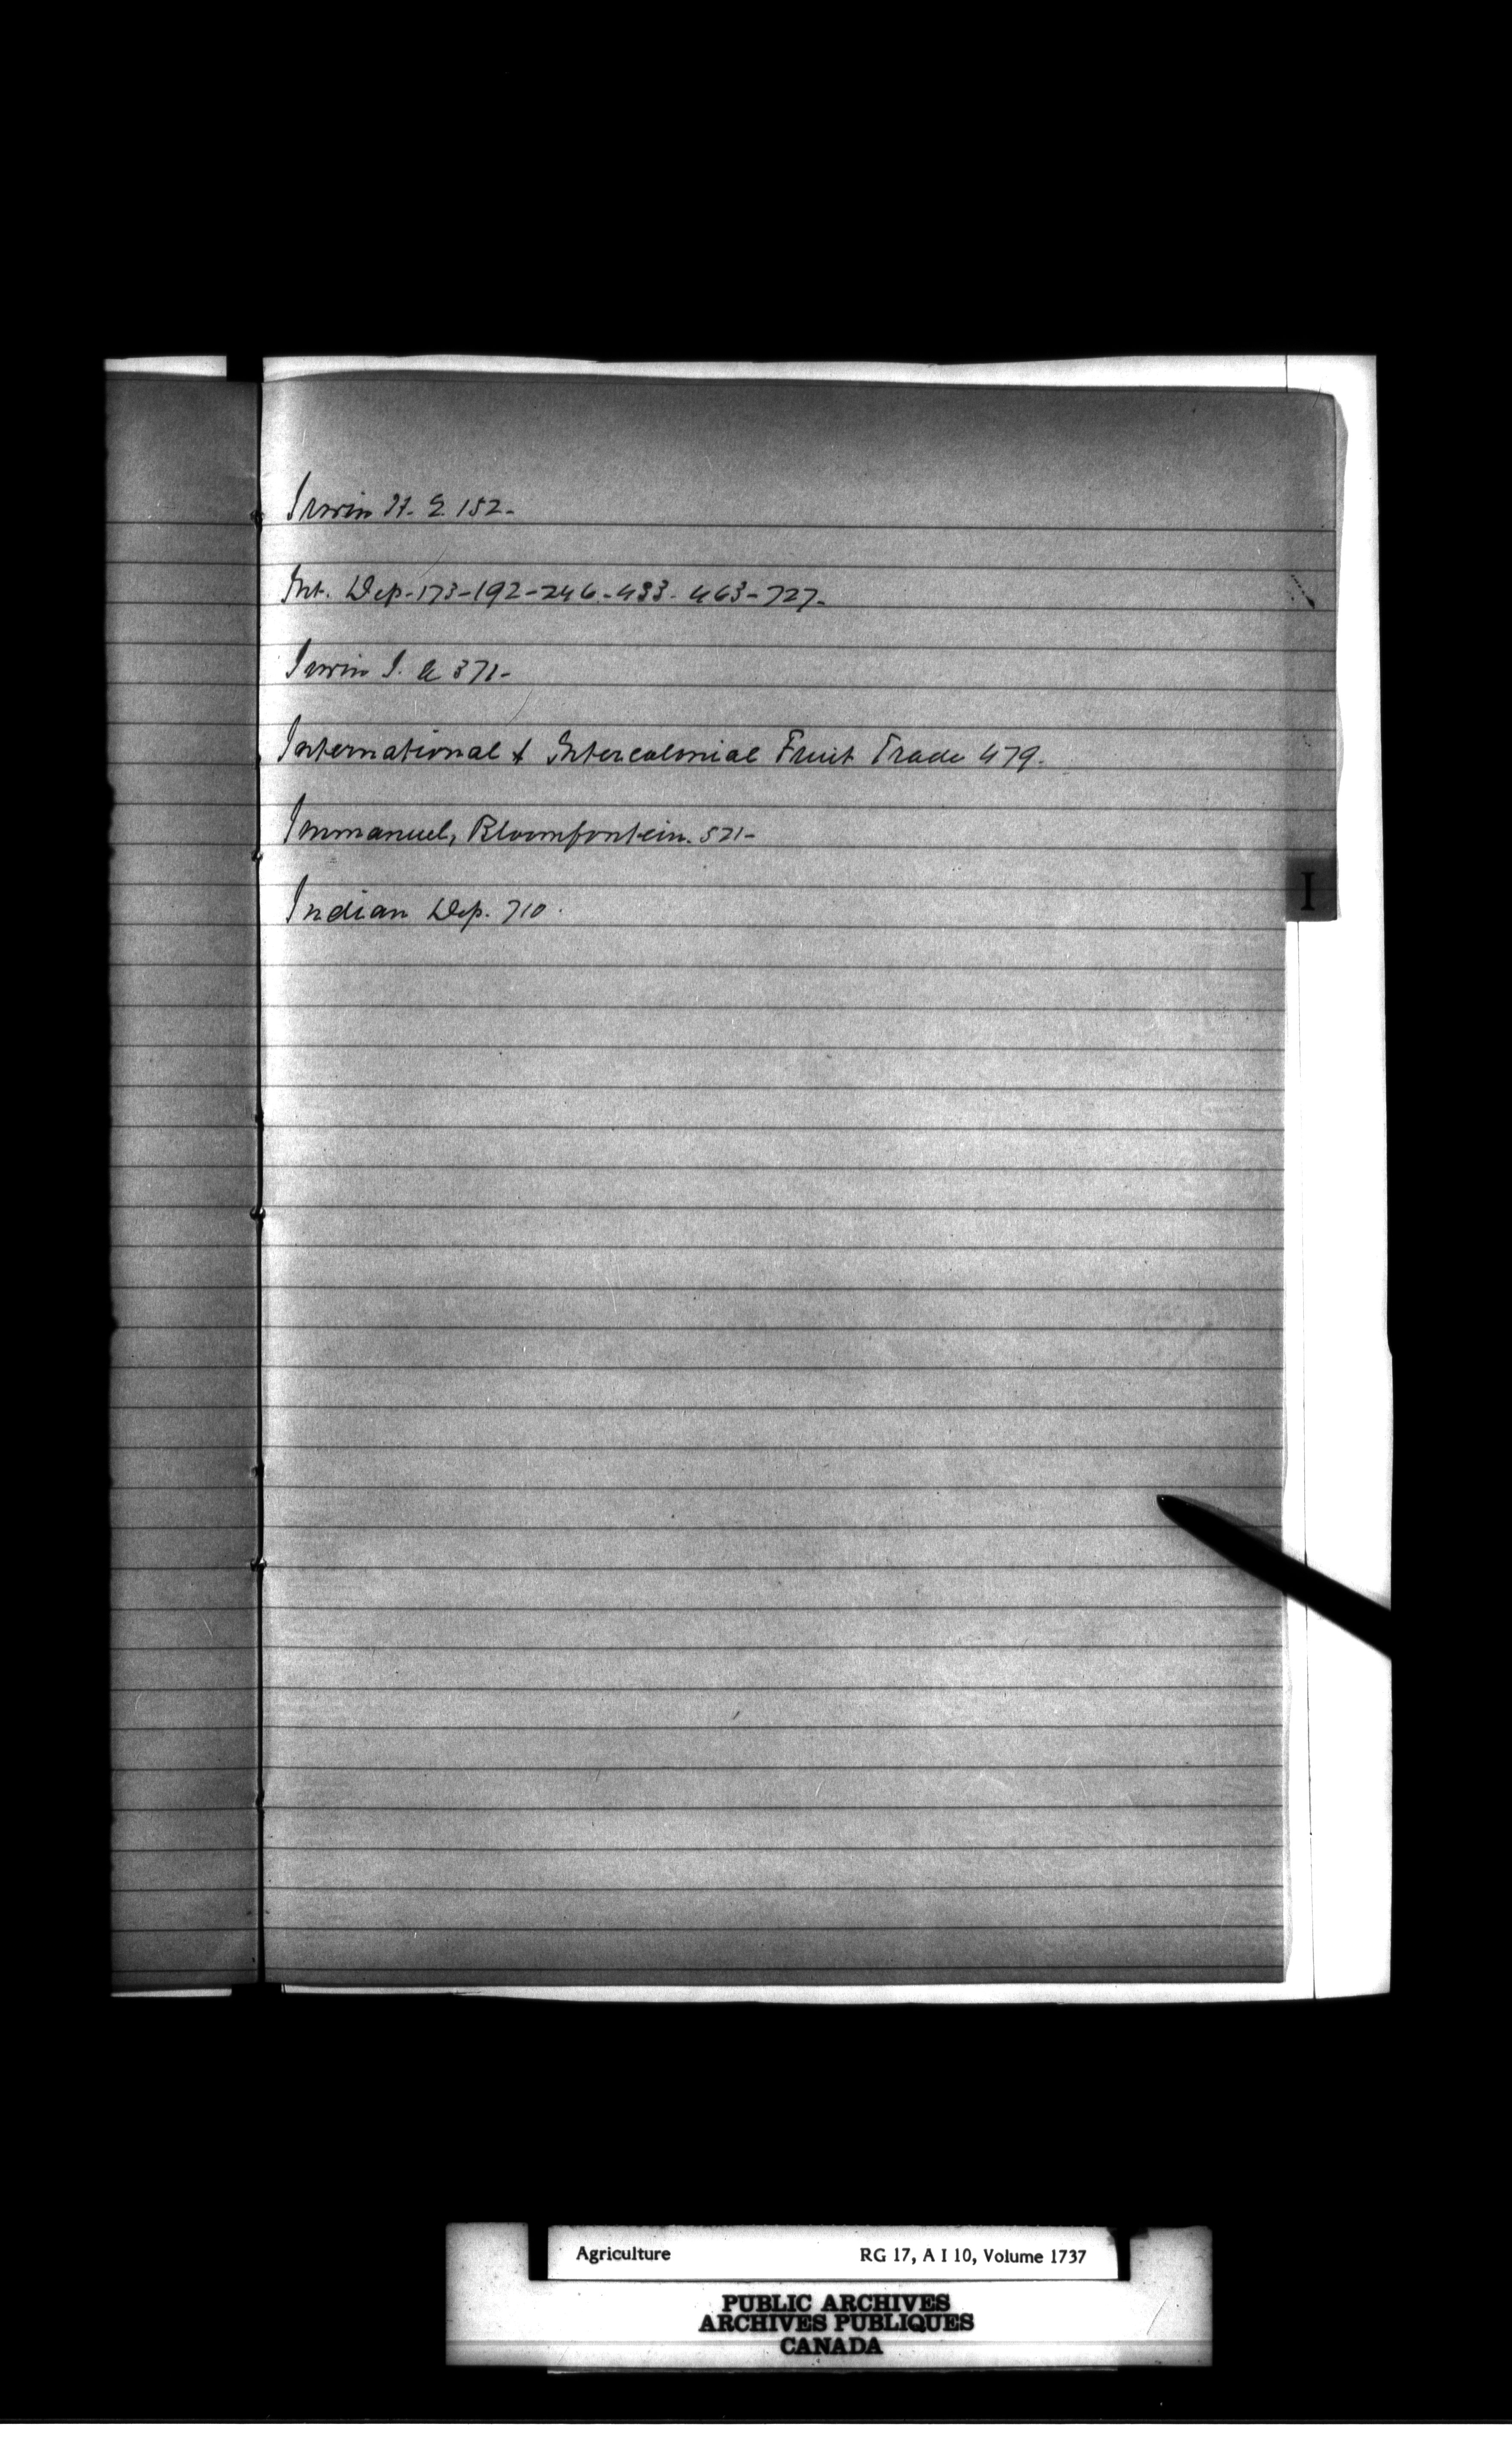 Irwin H. E. 152-
Int. Dep-173-192-246-433-463-727-
Irwin J. E 371-
International & Intercolonial Fruit Trade 479.
Immanuel, Bloomfontein. 521-
I
Indian Dep. 710.
Agriculture RG 17, A I 10, Volume 1737
PUBLIC ARCHIVES
ARCHIVES PUBLIQUES
CANADA